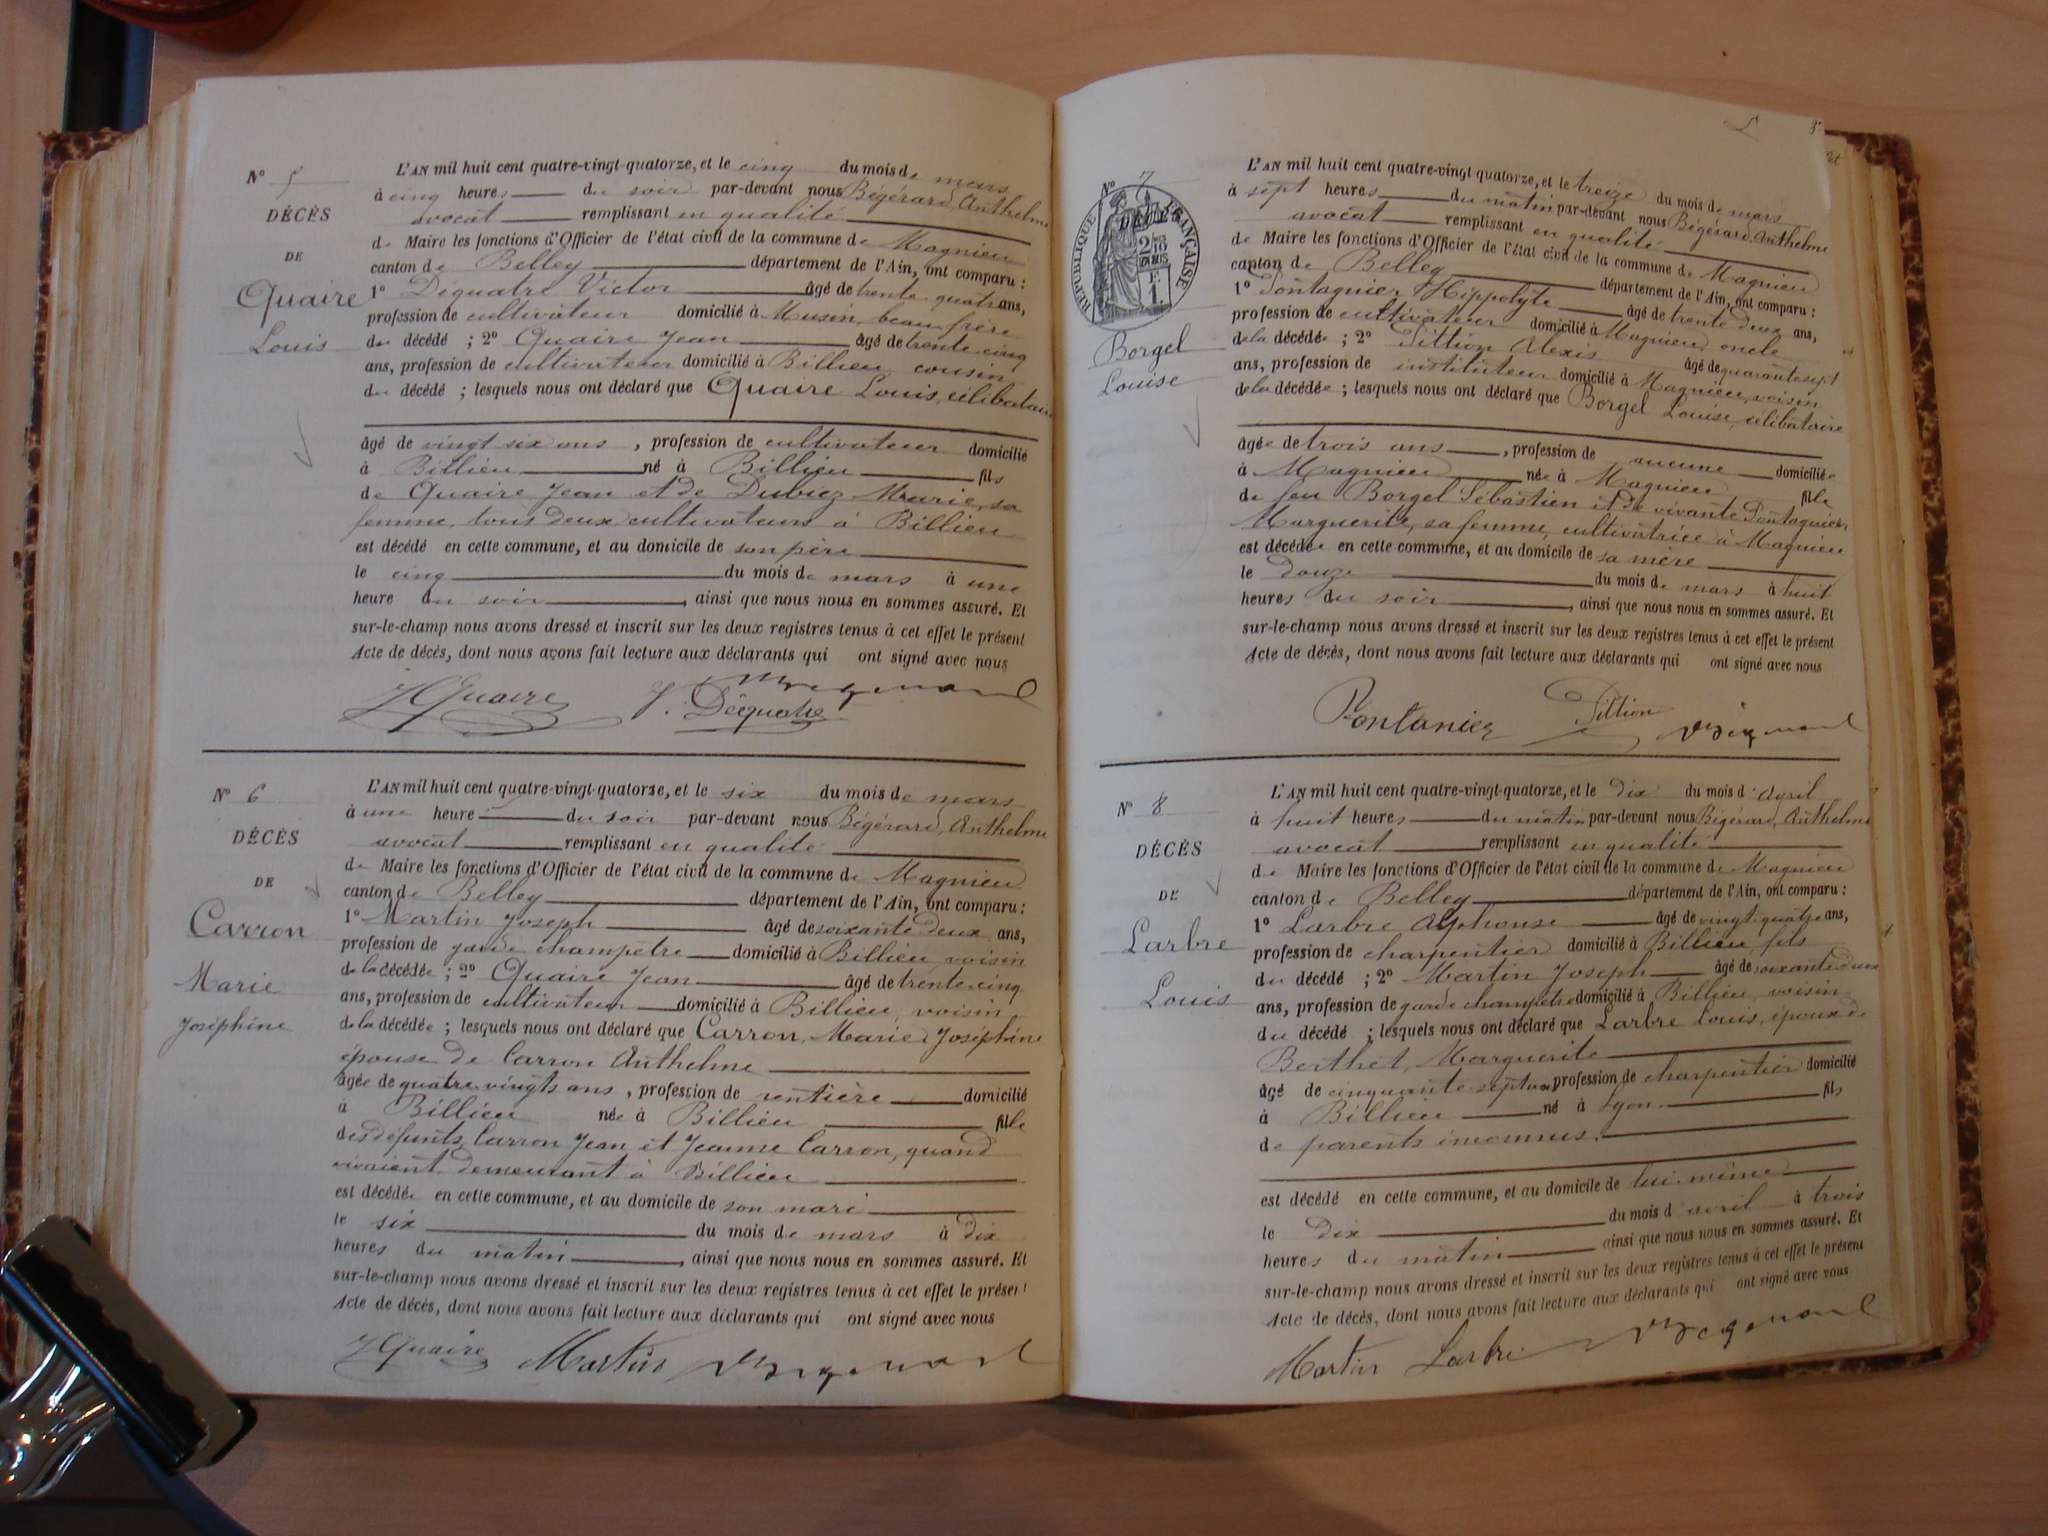 Nº 5
DÉCÈS
DE
Quaire
Louis
L'AN mil huit cent quatre-vingt-quatorze, et le cinq du mois de mars
à cinq heures du soir par-devant nous Bégérard, Anthelme
avocat remplissant en qualité
de Maire les fonctions d'Officier de l'état civil de la commune de Magnieu
canton de Belley département de l'Ain, ont comparu :
1º Déquatre Victor âgé de trente quatre ans,
profession de cultivateur domicilié à Musin, beau frère
du décédé ; 2º Quaire Jean âgé de trente cinq
ans, profession de cultivateur domicilié à Billieu cousin
du décédé ; lesquels nous ont déclaré que Quaire Louis, célibataire
âgé de vingt six ans , profession de cultivateur domicilié
à Billieu né à Billieu fils
de Quaire Jean et de Dubiez Marie, sa
femme, tous deux cultivateurs à Billieu
est décédé en cette commune, et au domicile de son père
le cinq du mois de mars à une
heure du soir , ainsi que nous nous en sommes assuré. Et
sur-le-champ nous avons dressé et inscrit sur les deux registres tenus à cet effet le présent
Acte de décès, dont nous avons fait lecture aux déclarants qui ont signé avec nous
J Quaire V. Déquatre
Nº 6
DÉCÈS
DE
Carron
Marie
Joséphine
L'AN mil huit cent quatre-vingt-quatorze, et le six du mois de mars
à une heure du soir par-devant nous Bégérard, Anthelme
avocat remplissant en qualité
de Maire les fonctions d'Officier de l'état civil de la commune de Magnieu
canton de Belley département de l'Ain, ont comparu :
1º Martin Joseph âgé de soixante deux ans,
profession de garde champêtre domicilié à Billieu, voisin
de la décédée ; 2º Quaire Jean âgé de trente cinq
ans, profession de cultivateur domicilié à Billieu, voisin
de la décédée ; lesquels nous ont déclaré que Carron, Marie Joséphine
épouse de Carron Anthelme
âgée de quatre vingts ans , profession de rentière domicilié
à Billieu née à Billieu fille
des défunts Carron Jean et Jeanne Carron, quand
vivaient demeurant à Billieu
est décédée en cette commune, et au domicile de son mari
le six du mois de mars à dix
heures du matin , ainsi que nous nous en sommes assuré. Et
sur-le-champ nous avons dressé et inscrit sur les deux registres tenus à cet effet le présent
Acte de décès, dont nous avons fait lecture aux déclarants qui ont signé avec nous
J Quaire Martin
Nº 7
DÉCÈS
RÉPUBLIQUE FRANÇAISE
Borgel
Louise
L'AN mil huit cent quatre-vingt quatorze, et le treize du mois de mars
à sept heures du matin par-devant nous Bégérard, Anthelme
avocat remplissant en qualité
de Maire les fonctions d'Officier de l'état civil de la commune de Magnieu
canton de Belley département de l'Ain, ont comparu :
1º Fontagnier Hippolyte âgé de trente deux ans,
profession de cultivateur domicilié à Magnieu, oncle
de la décédée ; 2º Tittion Alexis âgé de quarante sept
ans, profession de instituteur domicilié à Magnieu, voisin
de la décédée ; lesquels nous ont déclaré que Borgel Louise, célibataire
âgée de trois ans , profession de aucune domiciliée
à Magnieu née à Magnieu fille
de feu Borgel Sébastien et de vivante Fontagnier
Marguerite, sa femme, cultivatrice à Magnieu
est décédée en cette commune, et au domicile de sa mère
le douze du mois de mars à huit
heures du soir , ainsi que nous nous en sommes assuré. Et
sur-le-champ nous avons dressé et inscrit sur les deux registres tenus à cet effet le présent
Acte de décès, dont nous avons fait lecture aux déclarants qui ont signé avec nous
Fontanier Tittion
Nº 8
DÉCÈS
DE
Larbre
Louis
L'AN mil huit cent quatre-vingt-quatorze, et le dix du mois d'avril
à huit heures du matin par-devant nous Bégérard, Anthelme
avocat remplissant en qualité
de Maire les fonctions d'Officier de l'état civil de la commune de Magnieu
canton de Belley département de l'Ain, ont comparu :
1º Larbre Alphonse âgé de vingt quatre ans,
profession de charpentier domicilié à Billieu fils
du décédé ; 2º Martin Joseph âgé de soixante deux
ans, profession de garde champêtre domicilié à Billieu, voisin
du décédé ; lesquels nous ont déclaré que Larbre Louis, époux de
Berthet, Marguerite
âgé de cinquante sept ans profession de charpentier domicilié
à Billieu né à Lyon fils
de parents inconnus.
est décédé en cette commune, et au domicile de lui-même
le dix du mois d'avril à trois
heures du matin ainsi que nous nous en sommes assuré. Et
sur-le-champ nous avons dressé et inscrit sur les deux registres tenus à cet effet le présent
Acte de décès, dont nous avons fait lecture aux déclarants qui ont signé avec nous
Martin Larbre